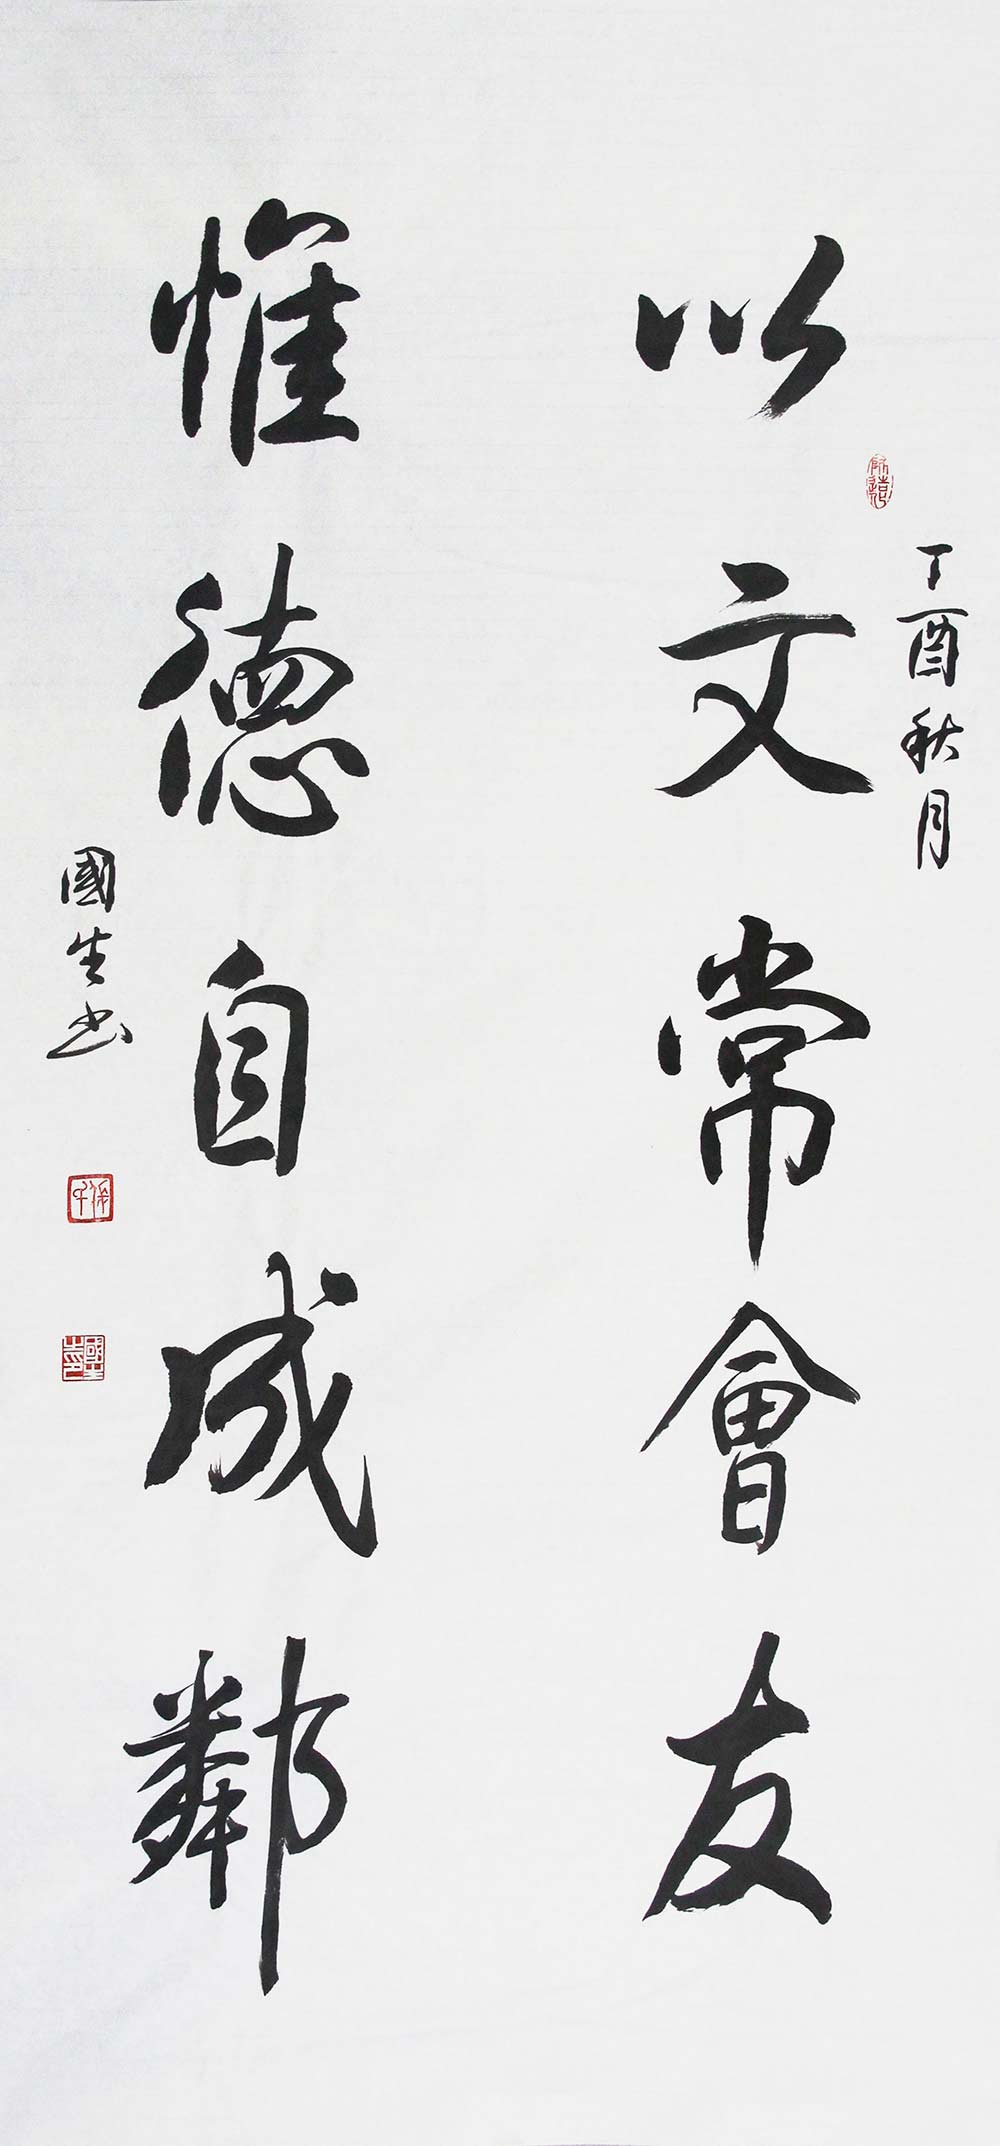 丁酉秋月
以文常會友
惟德自成鄰
國生书